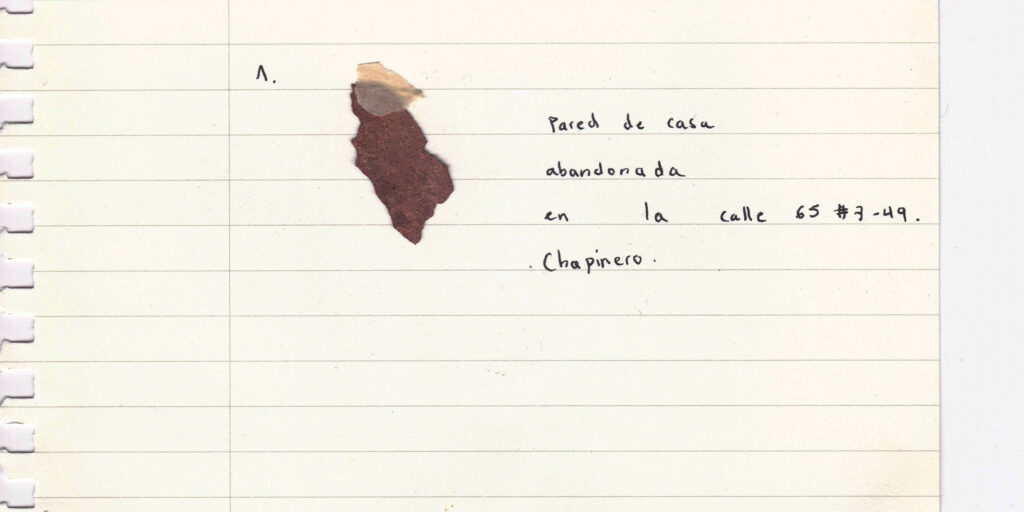 1.
Pared de casa
abandonada
en la calle 65 #7-49.
. Chapinero.